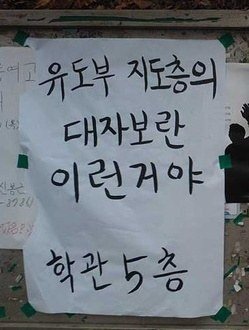 유도부 지도층의
대자보란
이런거야
학관 5층